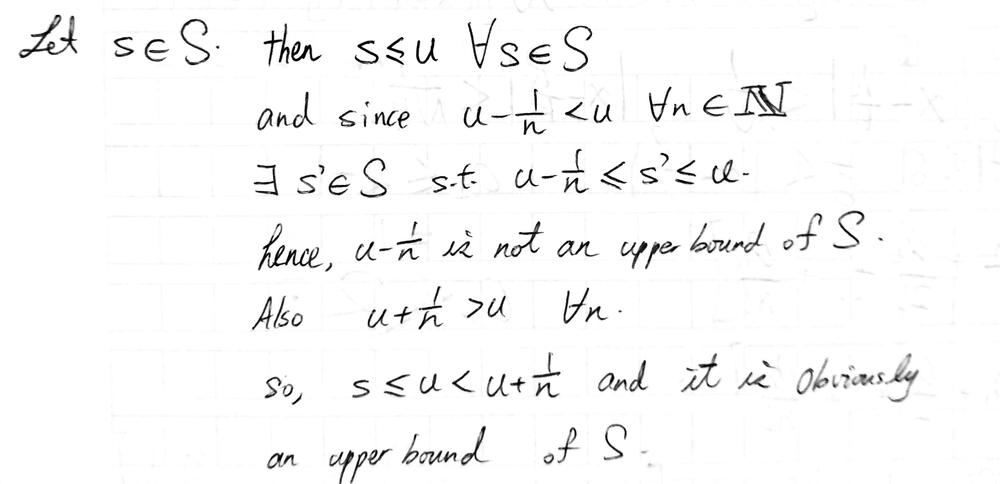 Let s ∈ S. then s ≤ u ∀s ∈ S
and since u - 1/n < u ∀n ∈ ℕ
∃ s' ∈ S s.t. u - 1/n ≤ s' ≤ u.
hence, u - 1/n is not an upper bound of S.
Also u + 1/n > u ∀n.
so, s ≤ u < u + 1/n and it is obviously
an upper bound of S.